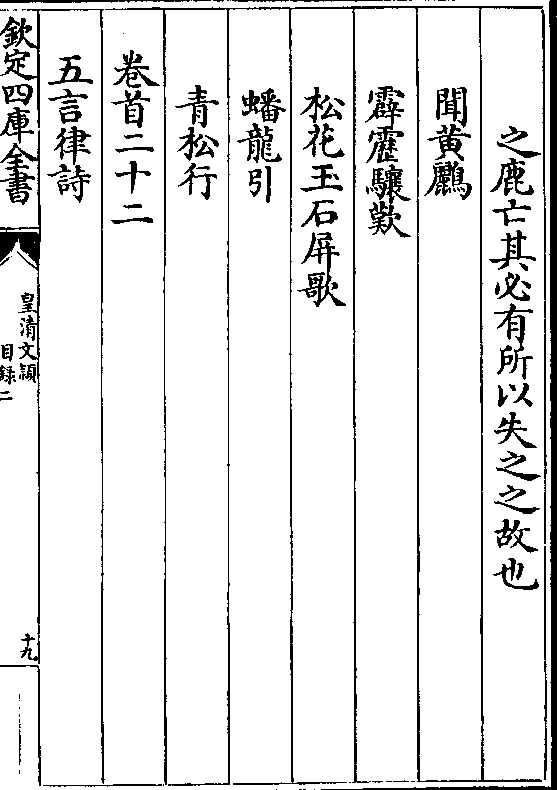 之鹿亡其必有所以失之之故也
聞黃鸝
霹靂驤歎
松花玉石屏歌
蟠龍引
青松行
卷首二十二
五言律詩
欽定四庫全書
皇清文穎
目錄二
十九